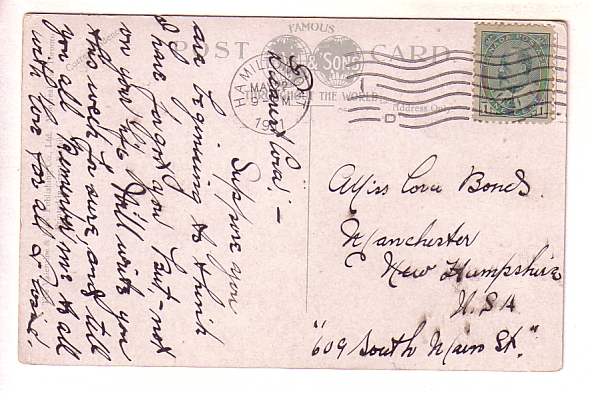 FAMOUS
POST CARD
& SONS
THROUGHOUT THE WORLD
HAMILTON
MA
9 M
1911
CANADA POSTAGE
1 1
Address Only
Correspondence
Dearest Cora: –
Suppose you
are beginning to think
I have forgot you but – not
on your life. Will write you
this week for sure and tell
you all. Remember me to all
with love for all
Miss Cora Bonds
Manchester
New Hampshire
U.S.A
"609 South Main St."